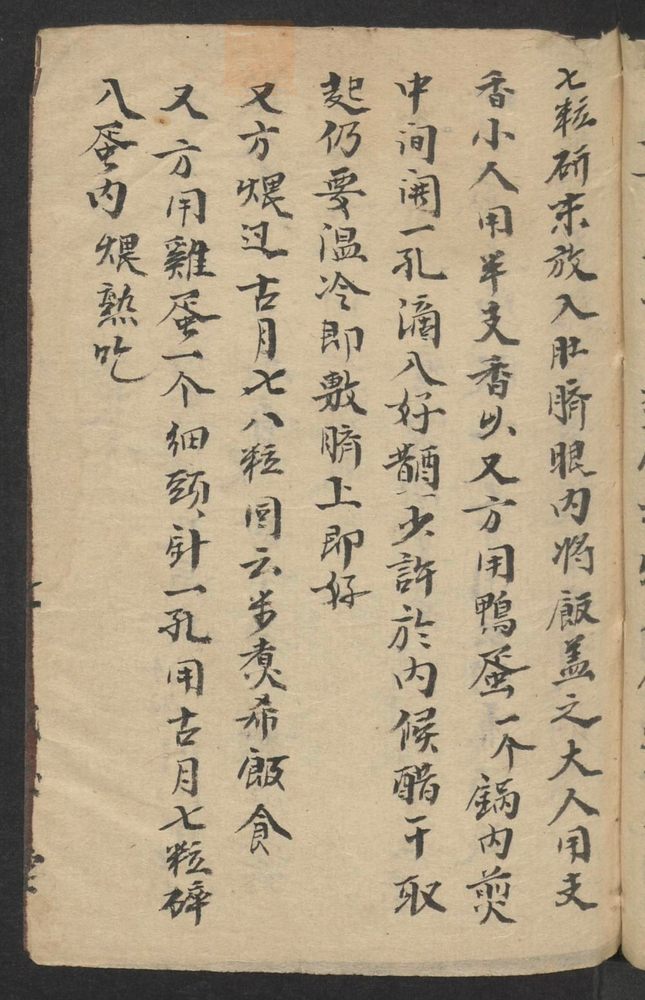 七粒研末放入肚臍眼内将飯盖之大人用支
香小人用半支香以又方用鴨蛋一个鍋内煎
中间闲一孔滴入好醋少許於内候醋干取
起仍要温冷即敷臍上即好
又方煨过古月七八粒同云米煮希飯食
又方用雞蛋一个细頭針一孔用古月七粒碎
入蛋内煨熟吃